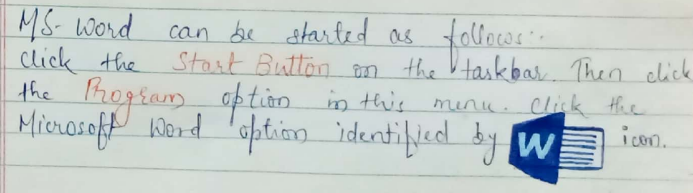 MS-Word can be started as follows:-
Click the Start Button on the taskbar. Then click
the Program option in this menu. Click the
Microsoft Word option identified by W icon.